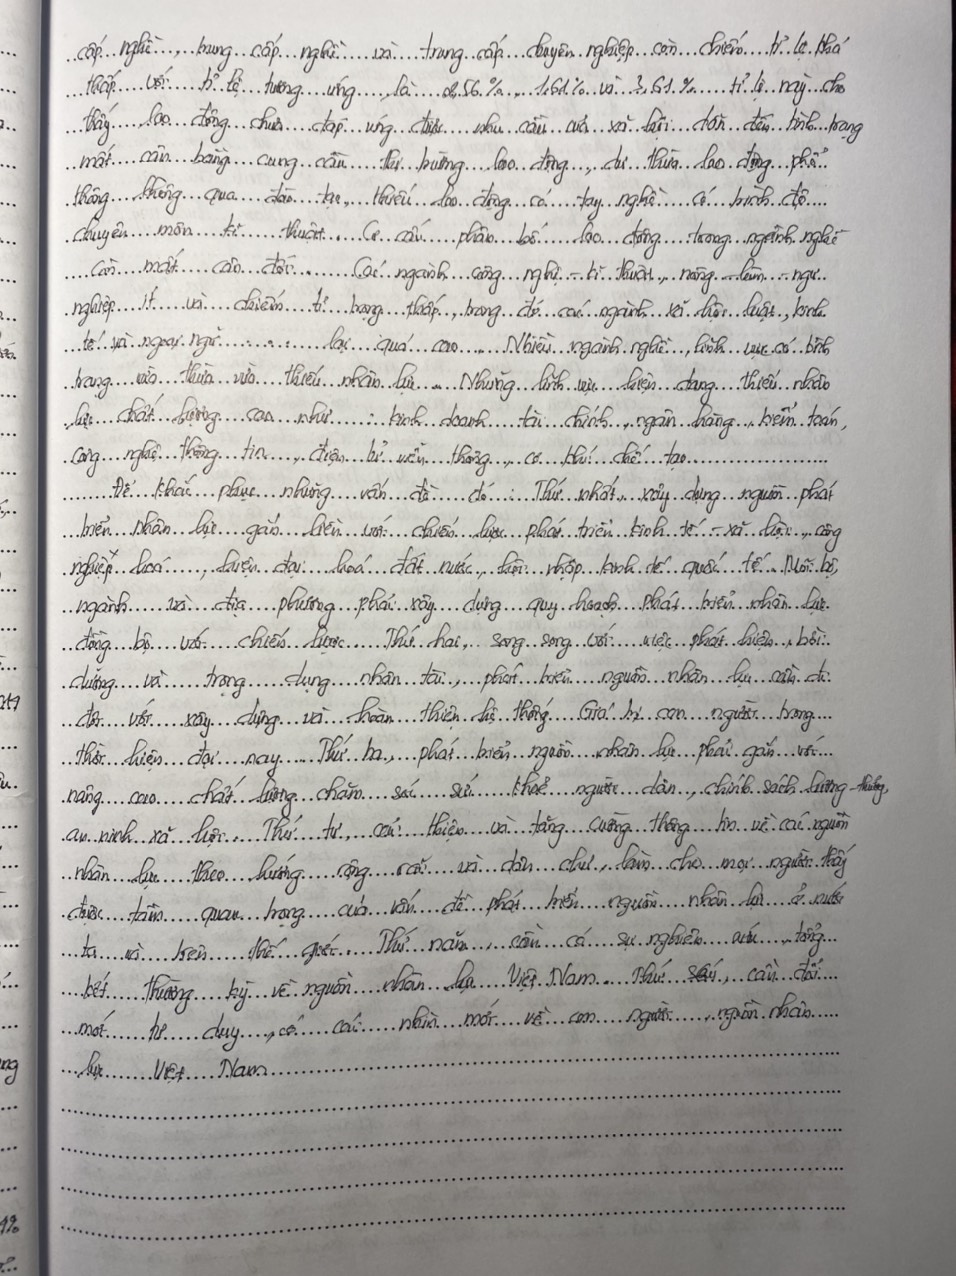 cấp nghề, trung cấp nghề và trung cấp chuyên nghiệp còn chiếm tỉ lệ khá
thấp với tỉ lệ tương ứng là 1,61% và 3,61% tỉ lệ này cho
thấy lao động chưa đáp ứng được nhu cầu của xã hội dẫn đến tình trạng
mất cân bằng cung cầu thị trường lao động, dư thừa lao động phổ
thông không qua đào tạo, thiếu lao động có tay nghề có trình độ
chuyên môn kĩ thuật. Cơ cấu phân bố lao động trong ngành nghề
còn mất cân đối. Các ngành công nghệ - kĩ thuật, nông - lâm - ngư
nghiệp ít và chiếm tỉ trọng thấp, trong đó các ngành xã hội luật, kinh
tế và ngoại ngữ ... lại quá cao. Nhiều ngành nghề, lĩnh vực có tình
trạng vừa thừa vừa thiếu nhân lực. Những lĩnh vực hiện đang thiếu nhân
lực chất lượng cao như: kinh doanh tài chính, ngân hàng, kiểm toán,
công nghệ thông tin, điện tử viễn thông, cơ khí chế tạo
Để khắc phục những vấn đề đó: Thứ nhất, xây dựng nguồn phát
triển nhân lực gắn liền với chiến lược phát triển kinh tế - xã hội, công
nghiệp hoá, hiện đại hoá đất nước, hội nhập kinh tế quốc tế. Mỗi bộ,
ngành và địa phương phải xây dựng quy hoạch phát triển nhân lực
đồng bộ với chiến lược. Thứ hai, song song với việc phát hiện, bồi
dưỡng và trọng dụng nhân tài, phát triển nguồn nhân lực cần đi
đôi với xây dựng và hoàn thiện hệ thống Giá trị con người trong
thời hiện đại nay. Thứ ba, phát triển nguồn nhân lực phải gắn với
nâng cao chất lượng chăm sóc sức khoẻ người dân, chính sách lương - thưởng,
an ninh xã hội. Thứ tư, cải thiện và tăng cường thông tin về các nguồn
nhân lực theo hướng rộng rãi và dân chủ, làm cho mọi người thấy
được tầm quan trọng của vấn đề phát triển nguồn nhân lực ở nước
ta và trên thế giới. Thứ năm, cần có sự nghiên cứu, tổng
kết thường kỳ về nguồn nhân lực Việt Nam. Thứ sáu, cần đổi
mới tư duy, có cái nhìn mới về con người, nguồn nhân
lực Việt Nam